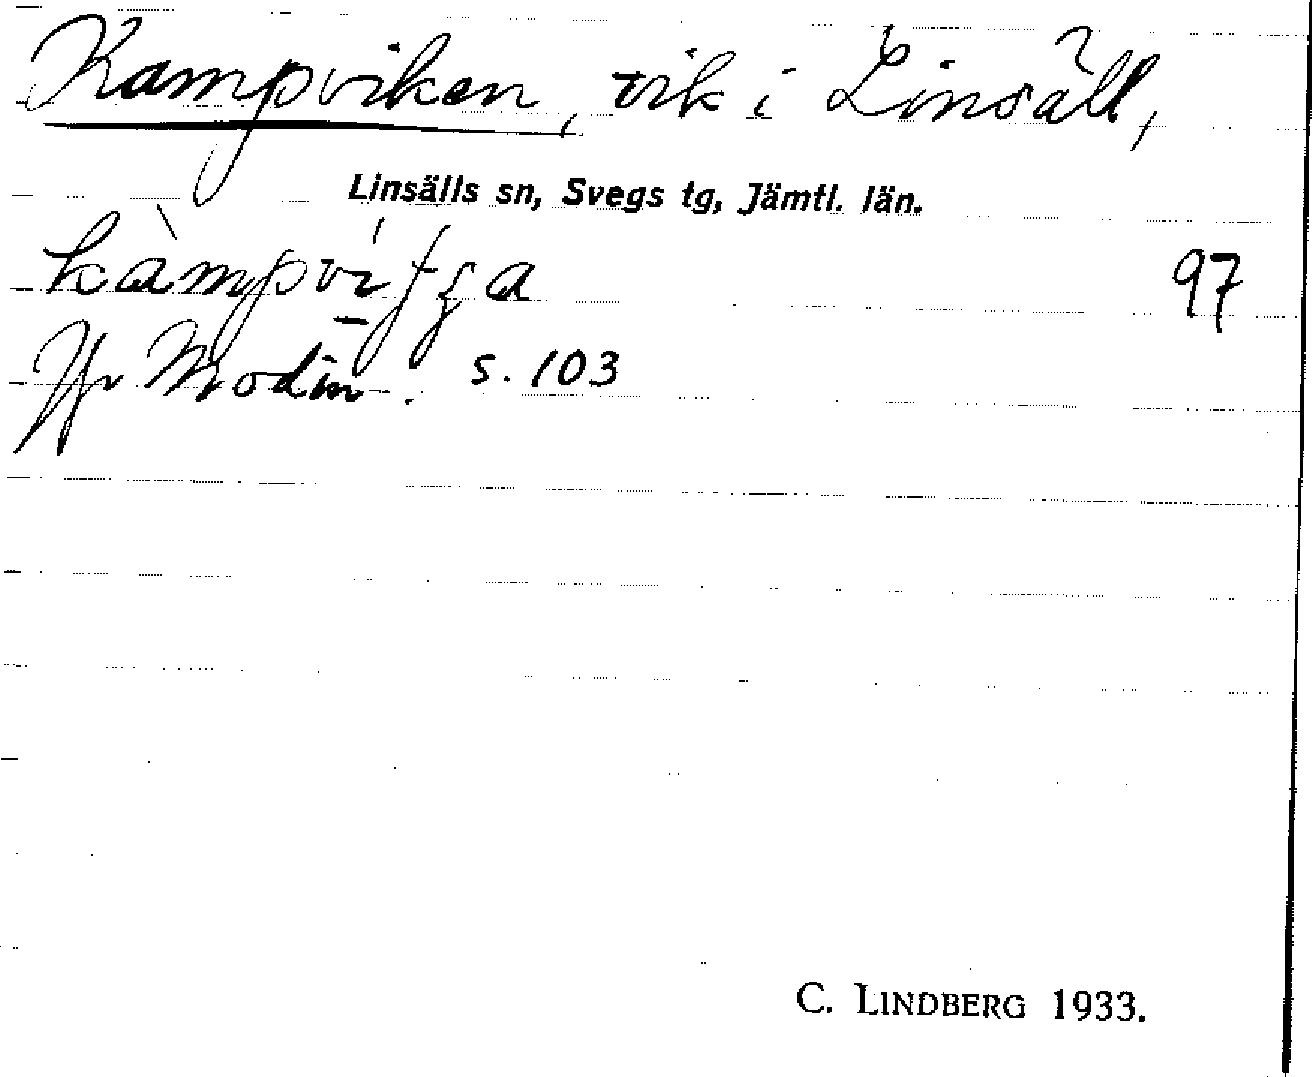 Kampviken, vik i Linsäll,
Linsälls sn, Svegs tg, Jämtl. län.
97
Jfr Modin. s. 103
C. LINDBERG 1933.